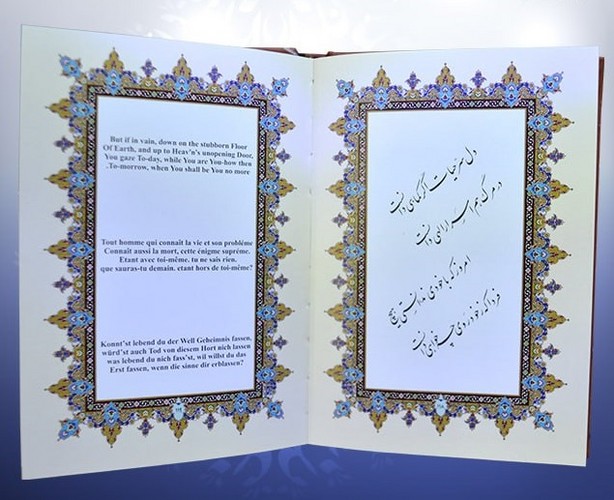 But if in vain, down on the stubborn Floor
Of Earth, and up to Heav'n's unopening Door,
You gaze To-day, while You are You-how then
.To-morrow, when You shall be You no more
Tout homme qui connaît la vie et son probléme
Connaît aussi la mort, cette énigme suprême.
Etant avec toi-même. tu ne sais rien.
que sauras-tu demain. etant hors de toi-même?
Konnt'st lebend du der Well Geheimnis fassen,
würd'st auch Tod von diesem Hort nich lassen
was lebend du nich fass'st, wil willst du das
Erst fassen, wenn die sinne dir erblassen?
دل سر حیات اگر کماهی دانست
در مرگ هم اسرار الهی دانست
امروز که با خودی ندانستی هیچ
فردا که ز خود روی چه خواهی دانست